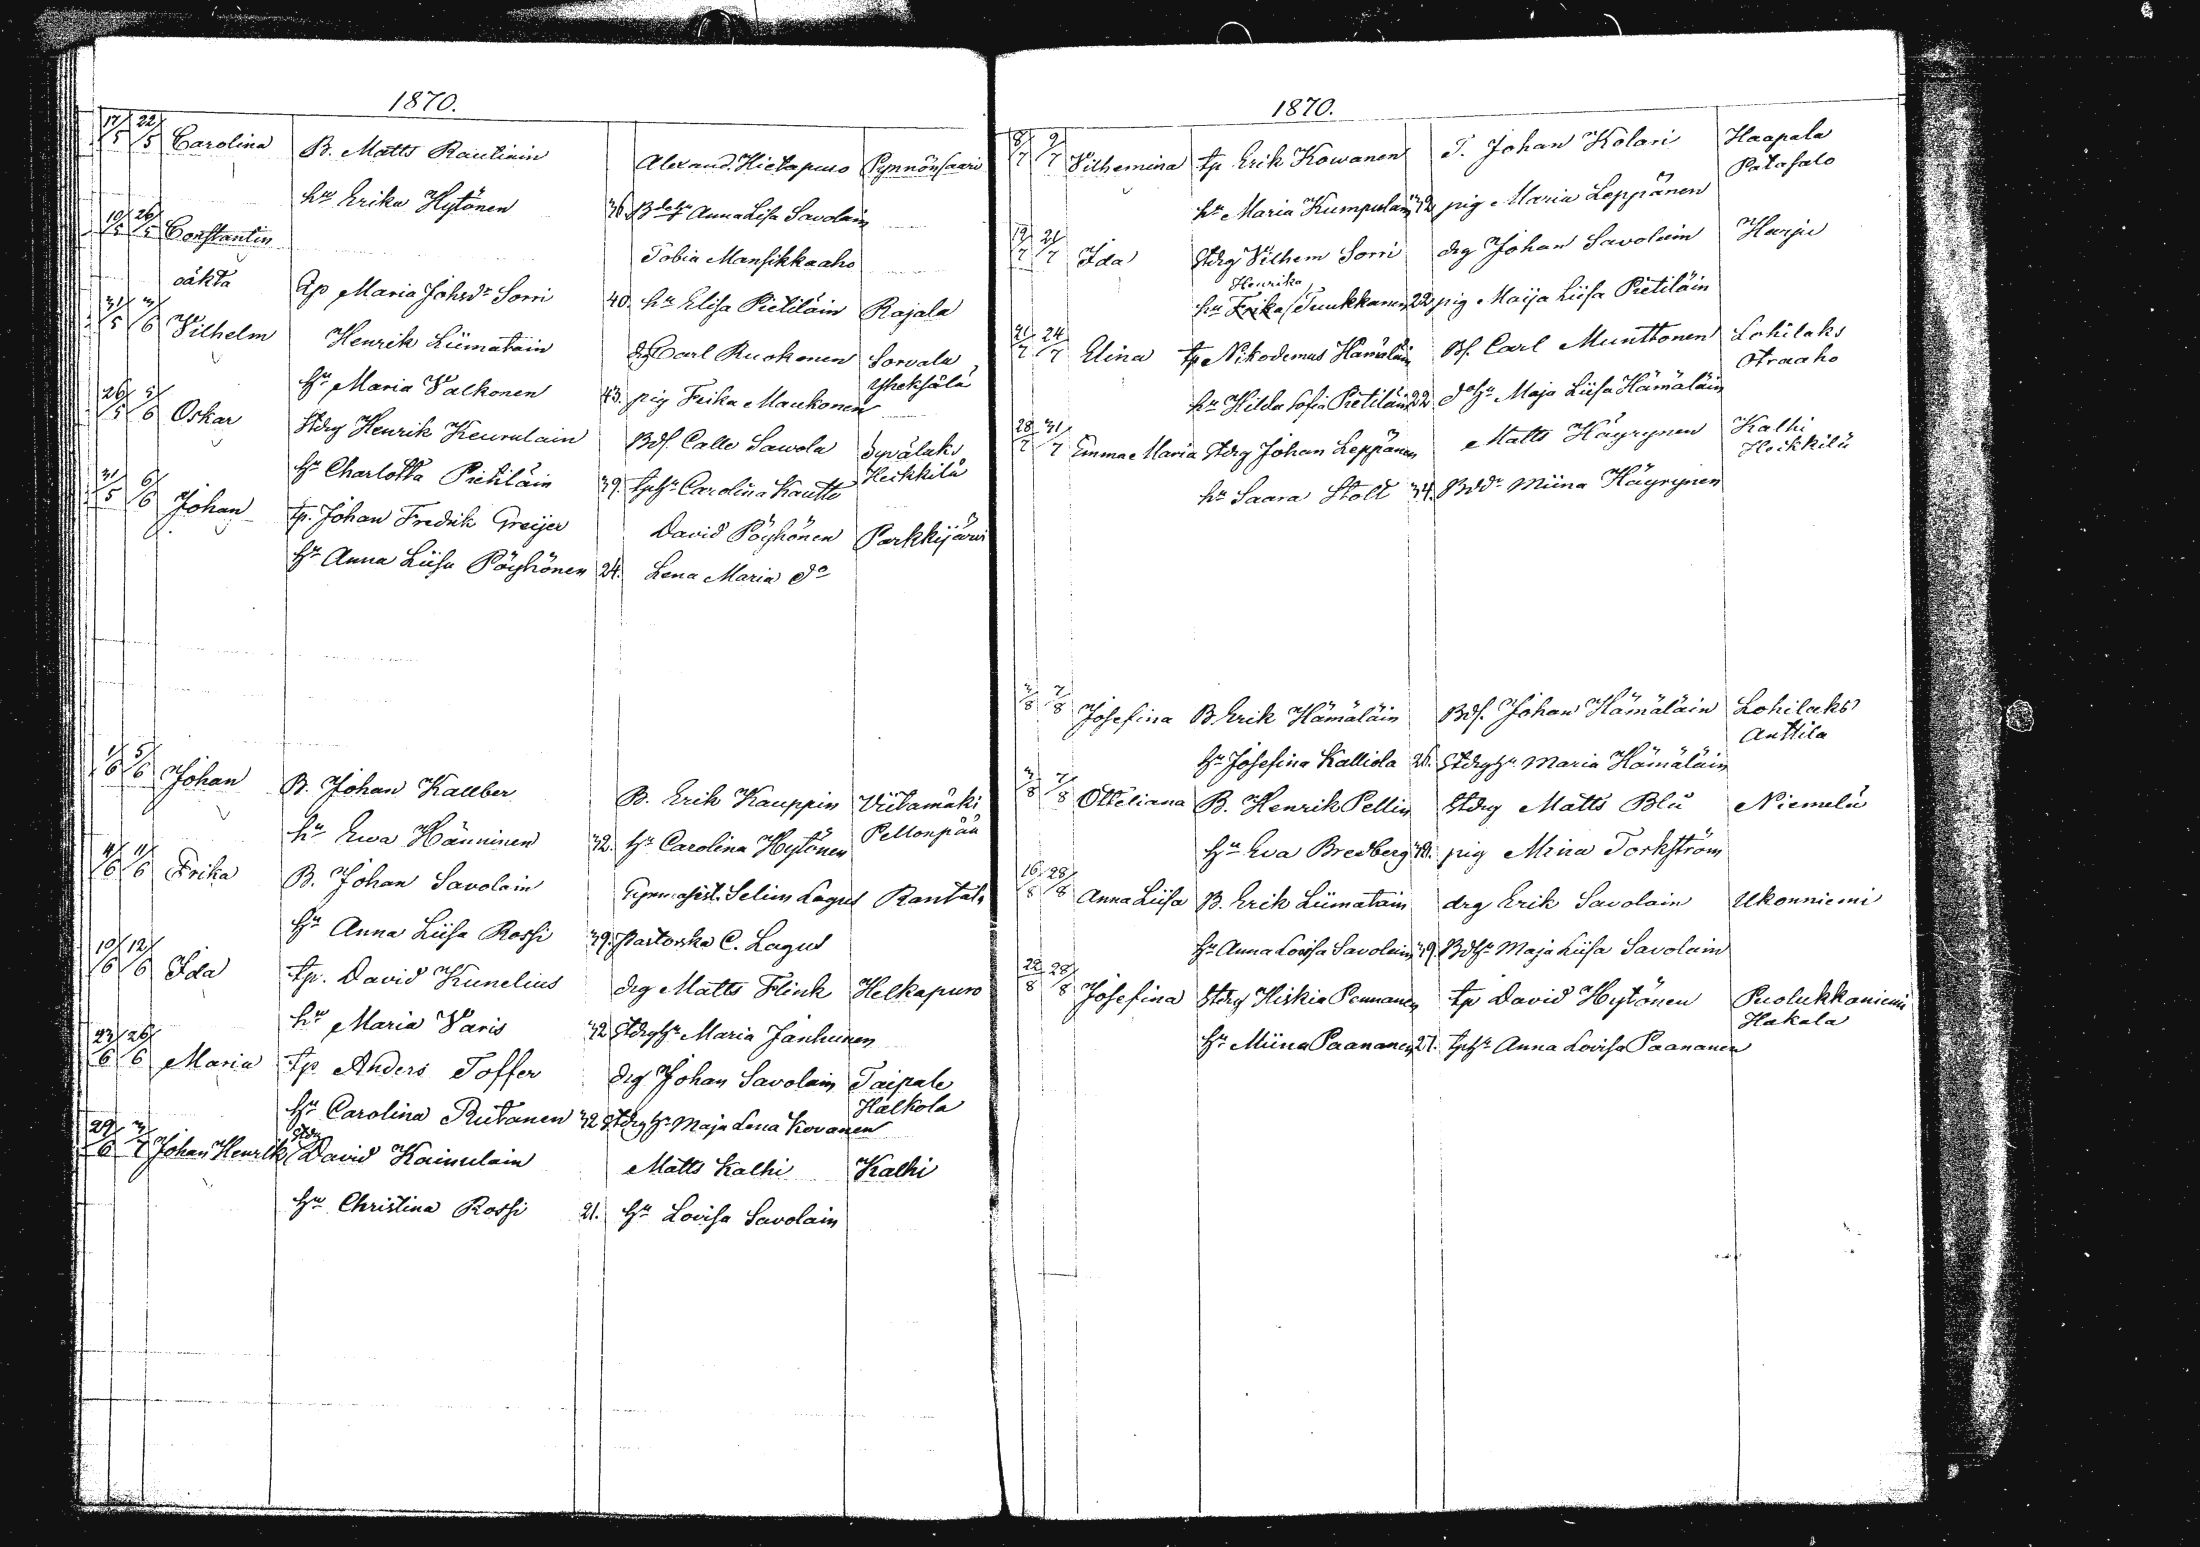 1870.
17/5 22/5 Carolina B. Matts Rautiain Alexand. Hietapuro Pynnönsaari
hu Erika Hytönen 36. Anna Lisa Savolain
10/5 26/5 Constantin Tobia Mansikkaaho
oäkta Maria Sorri 40. hu Elisa Pietiläin Rajala
31/5 3/6 Vilhelm Henrik Liimatain Carl Ruokonen Sorvala
Hu Maria Valkonen 43. pig Frika Maukonen Yheksälä
26/5 5/6 Oskar Stdrg Henrik Keurulain Bds. Calle Sawola Syvälaks
Hu Charlotta Pietiläin 39. tpHu Carolina Kautto Heikkilä
31/5 6/6 Johan tp. Johan Fredrik Greijer David Pöyhönen Parkkijärvi
Hu Anna Liisa Pöyhönen 24. Lena Maria do
1/6 5/6 Johan B. Johan Kallber B. Erik Kauppin Viitamäki
hu Ewa Hänninen 32. Hu Carolina Hytönen Pellonpää
4/6 11/6 Frika B. Johan Savolain Selim Lagus Rantala
Hu Anna Liisa Rossi 39. Pastorska C. Lagus
10/6 12/6 Ida tp. David Kunelius drg Matts Flink Helkapuro
hu Maria Varis 32 StdrgHu Maria Janhunen
23/6 26/6 Maria tp Anders Toffer drg Johan Savolain Taipale
Hu Carolina Rutanen 32 Stdrg Hu Maja Lena Kovanen Halkola
29/6 3/7 Johan Henrik Stdrg David Kainulain Matts Kalhi Kalhi
Hu Christina Rossi 21. Hu Lovisa Savolain
1870.
8/7 9/7 Vilhemina tp Erik Kowanen T. Johan Kolari Haapala
Patasalo
hu Maria Kumpulain 32 pig Maria Leppänen
19/7 21/7 Ida Stdrg Vilhem Sorri drg Johan Savolain Harju
Henrika
hu Frika Tuukkanen 22 pig Maija Liisa Pietiläin
21/7 24/7 Elina tp Nikodemus Hämäläin Bs. Carl Munttonen Lohilaks
Otraaho
hu Hilda Sofia Pietiläin 22. Maja Liisa Hämäläin
28/7 31/7 Emma Maria Stdrg Johan Leppänen Matts Häyrynen Kalhi
Heikkilä
hu Saara Stolt 34. Bdr Miina Häyrynen
3/8 7/8 Josefina B. Erik Hämäläin Bds. Johan Hämäläin Lohilaks
Anttila
Hu Josefina Kalliola 26. StdrgHu Maria Hämäläin
3/8 7/8 Otteliana B. Henrik Pellin Stdrg Matts Blå Niemelä
Hu Eva Bredberg pig Mina Torkström
16/8 28/8 Anna Liisa B. Erik Liimatain drg Erik Savolain Ukonniemi
Hu Anna Lovisa Savolain 39. BdHu Maja Liisa Savolain
22/8 28/8 Josefina Stdrg Hiskia Pennanen tp David Hytönen Puolukkaniemi
Hakala
Hu Miina Paananen 27. tpHu Anna Lovisa Paananen